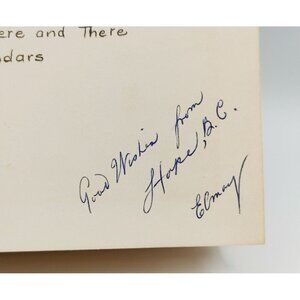 ere and There
dars
Good Wishes from
Hope, B.C.